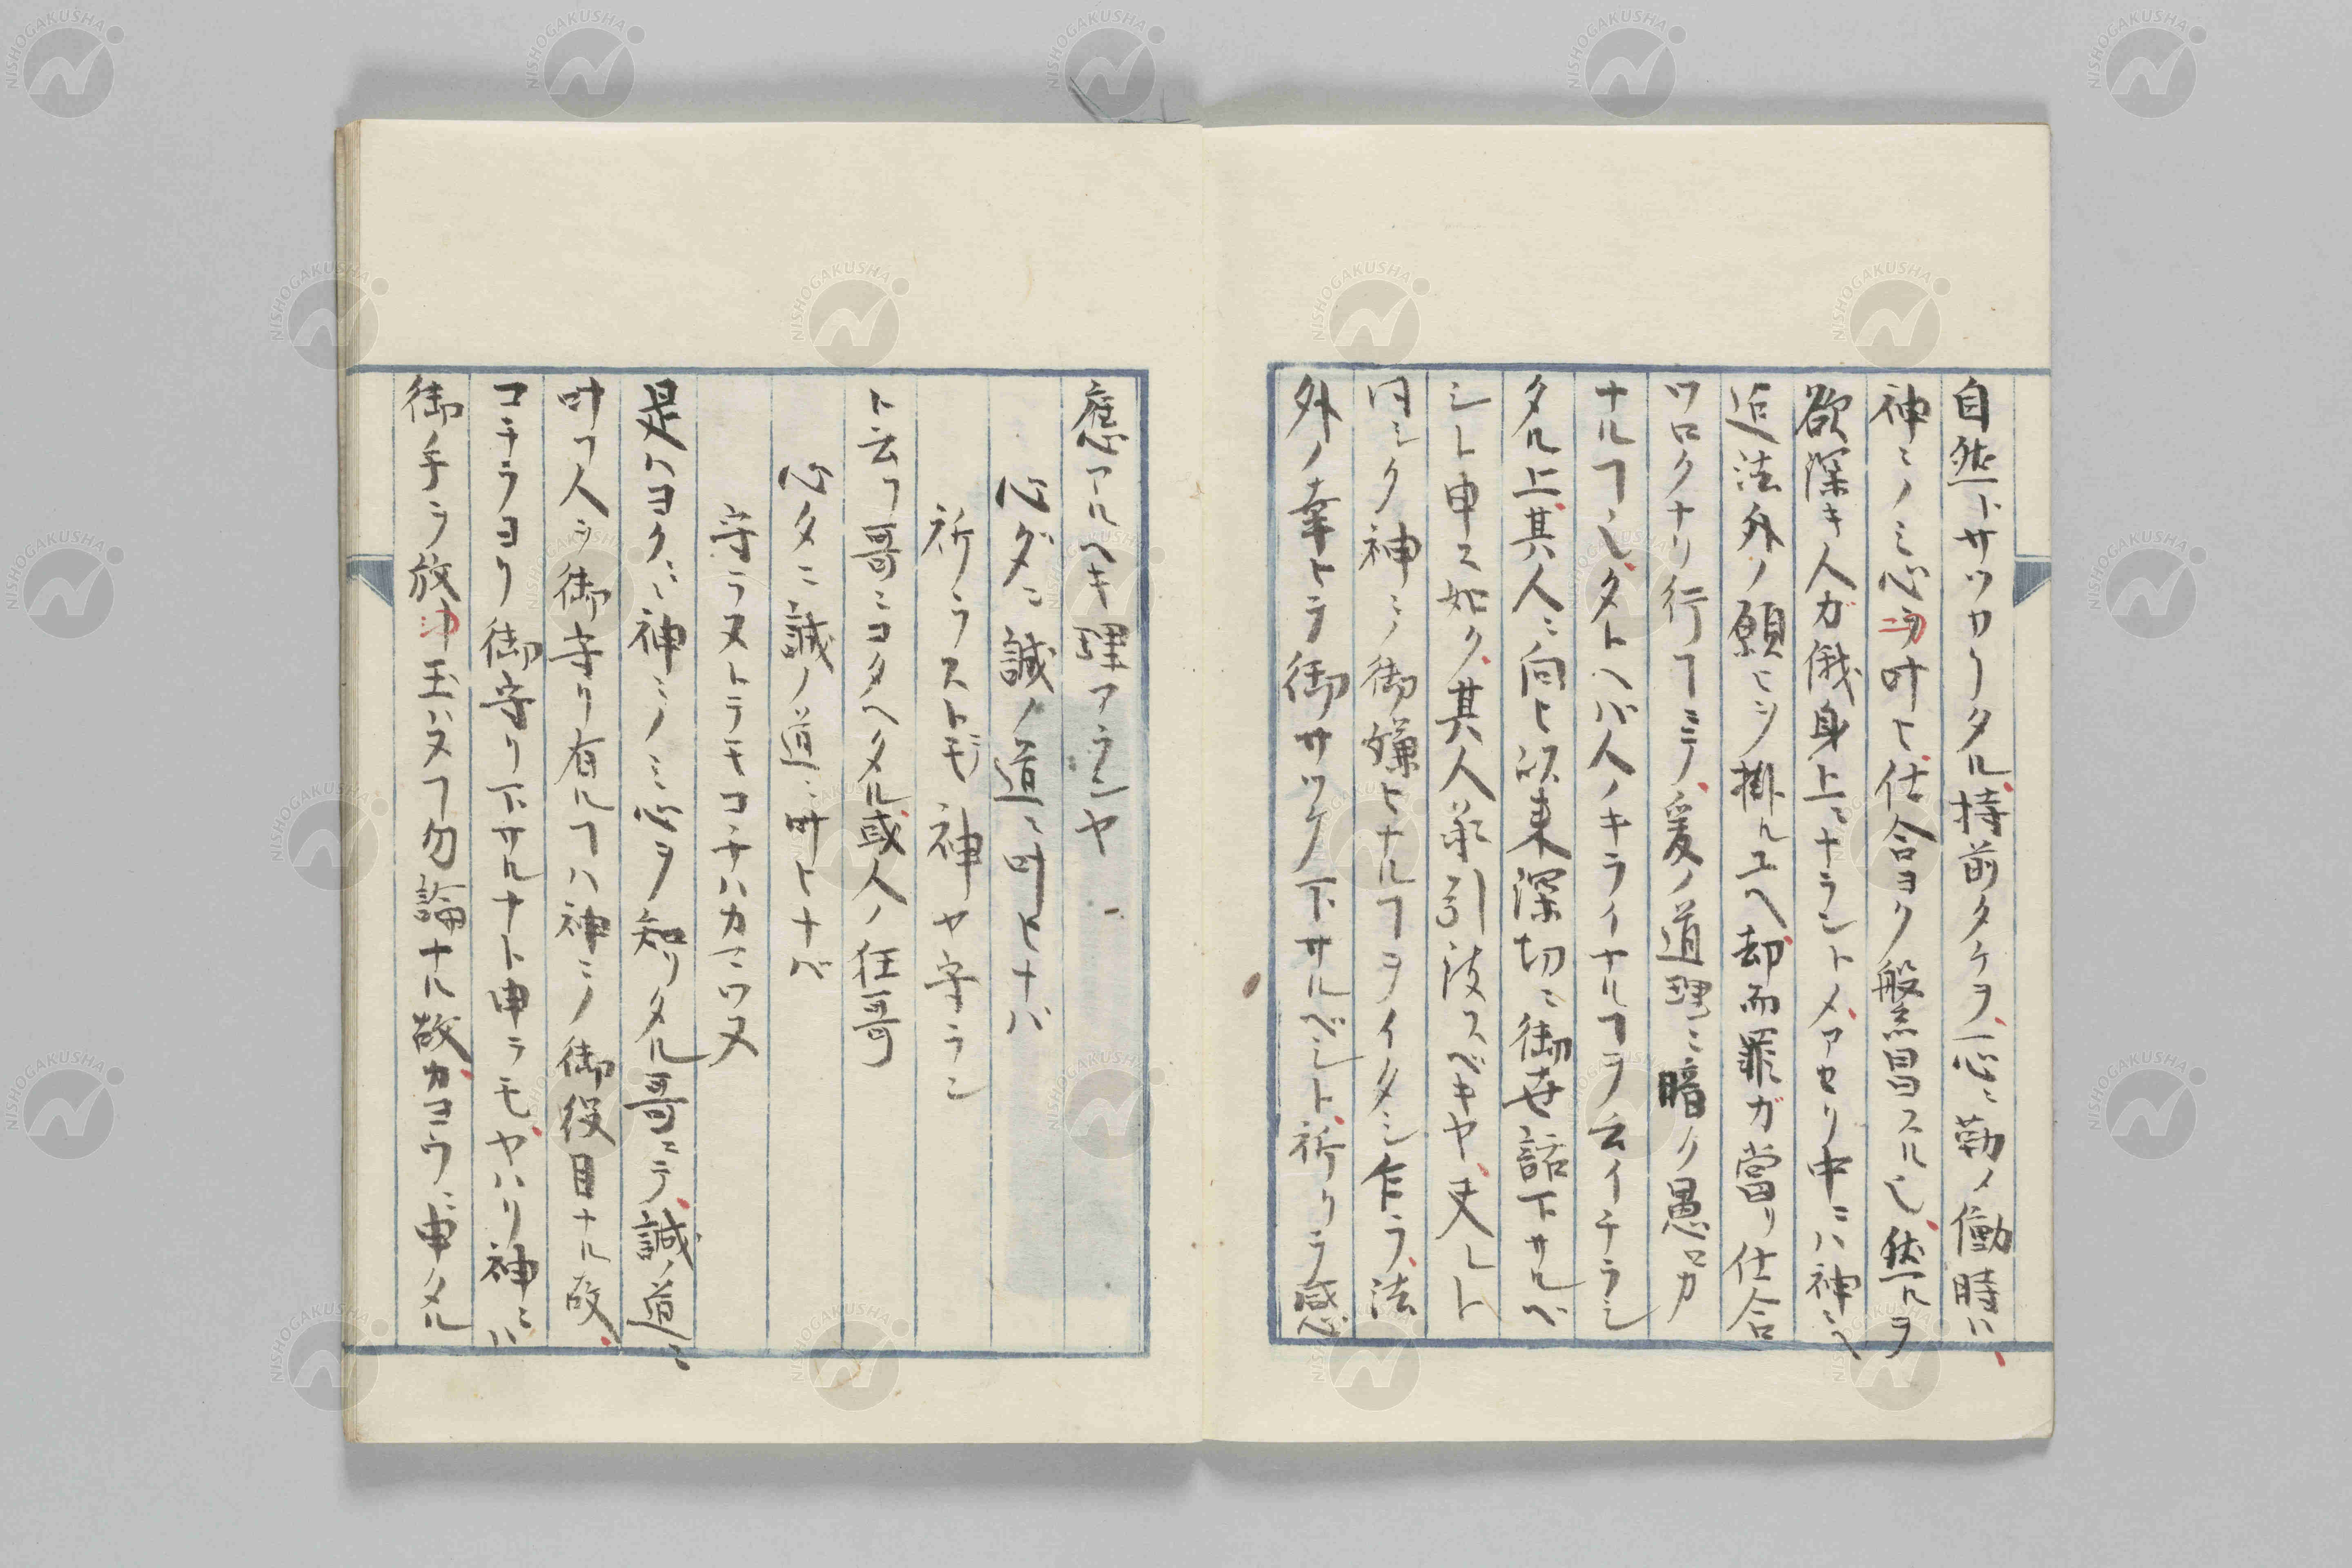 自然トサツカリタル持前タケヲ一心ニ勤メ働時ハ
神ミノミ心ヲ叶ヒ仕合ヨク繁昌スル也然ルヲ
欲深キ人ガ俄身上ニナラントメアセリ中ニハ神ミヘ
迄法外ノ願ヒヲ掛ルユヘ却而罪ガ當リ仕合
ワロクナリ行フミラ爰ノ道理ニ暗ク愚カ
ナルヿ也タトヘバ人ノキライナルヿヲ云イチラシ
タル上其人ニ向ヒ以来深切ニ御世話下サルベ
シト申ス如ク其人引請スベキヤ夫レト
同シク神ミノ御嫌ヒナルヿヲイタシ乍ラ法
外ノ幸トラ御サツケ下サルベシト祈クラ感
應アルヘキ理アランヤ
心ダニ誠ノ道ニ叶ヒナバ
祈ラストモ神ヤ守ラン
ト云フ哥ニコタヘタル或人ノ狂哥
心タニ誠ノ道ニ叶ヒナバ
守ラヌトテモコチハカマワヌ
是ハヨクニ神ミノミ心ヲ知リタル哥ニテ誠ノ道ニ
叶フ人ヲ御守リ有ルヿハ神ミノ御役目ナル故
コチラヨリ御守リ下サルナト申テモヤハリ神ニハ
御手ヲ放シ玉ハヌヿ勿論ナル故カヨウニ申タル
NISHOGAKUSHA